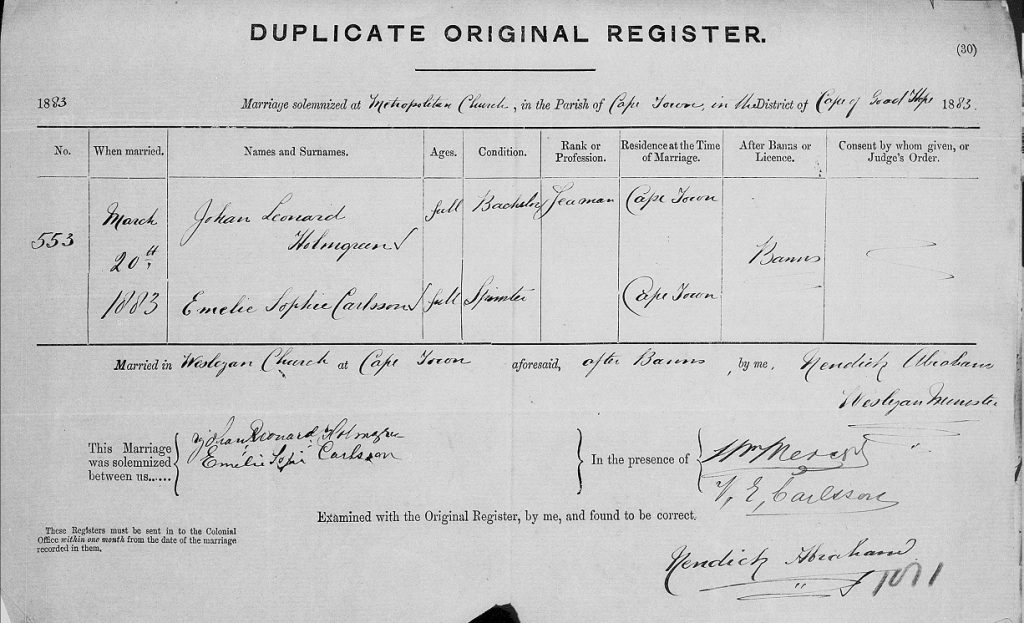 DUPLICATE ORIGINAL REGISTER.
(30)
1883 Marriage solemnized at Metropolitan Church, in the Parish of Cape Town, in the District of Cape of Good Hope 1883.
No. When married. Names and Surnames. Ages. Condition. Rank or Profession. Residence at the Time of Marriage. After Banns or Licence. Consent by whom given, or Judge's Order.
March Johan Leonard full Bachelor Seaman Cape Town
553 Holmgren
20th Banns
1883 Emelie Sophie Carlsson full Spinster Cape Town
Married in Wesleyan Church at Cape Town aforesaid, after Banns by me, Kendick Abraham
Wesleyan Minister
This Marriage was solemnized between us......
Johan Leonard Holmgren
Emelie Sofie Carlsson
In the presence of
Wm
Carlsson
Examined with the Original Register, by me, and found to be correct.
These Registers must be sent in to the Colonial
Office within one month from the date of the marriage
recorded in them.
Kendick Abraham